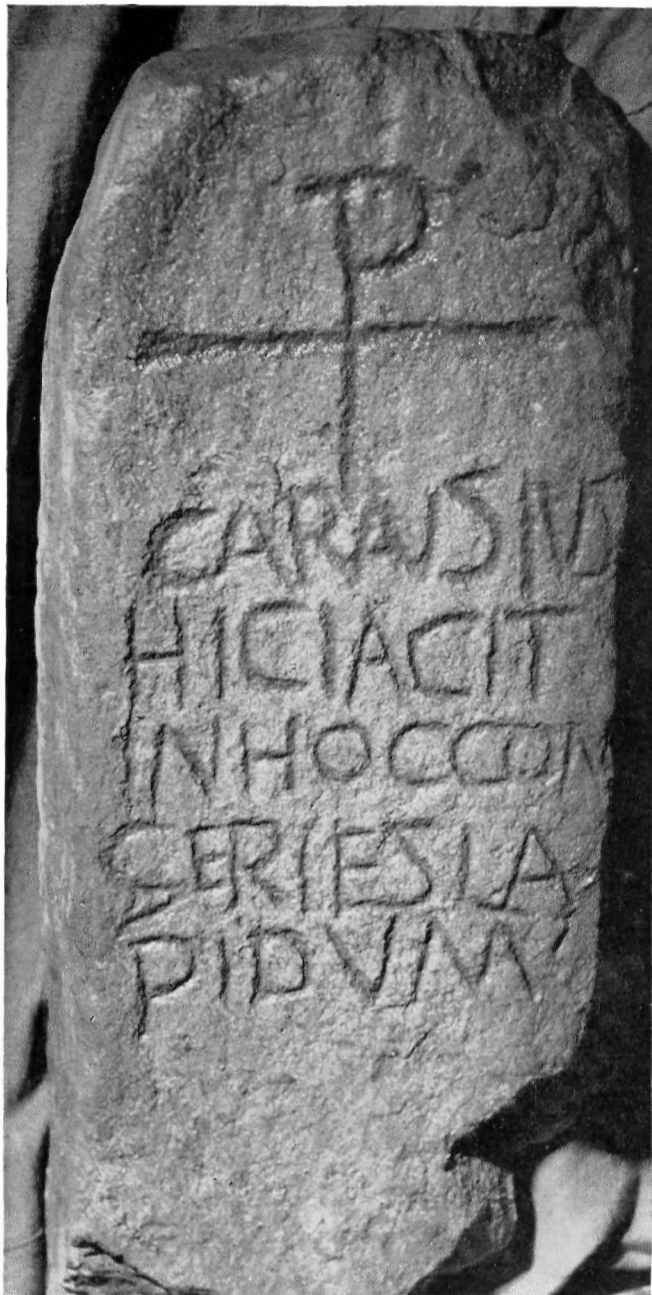 CARAVSIVS
HICIACIT
INHOCCON
GERIESLA
PIDVM